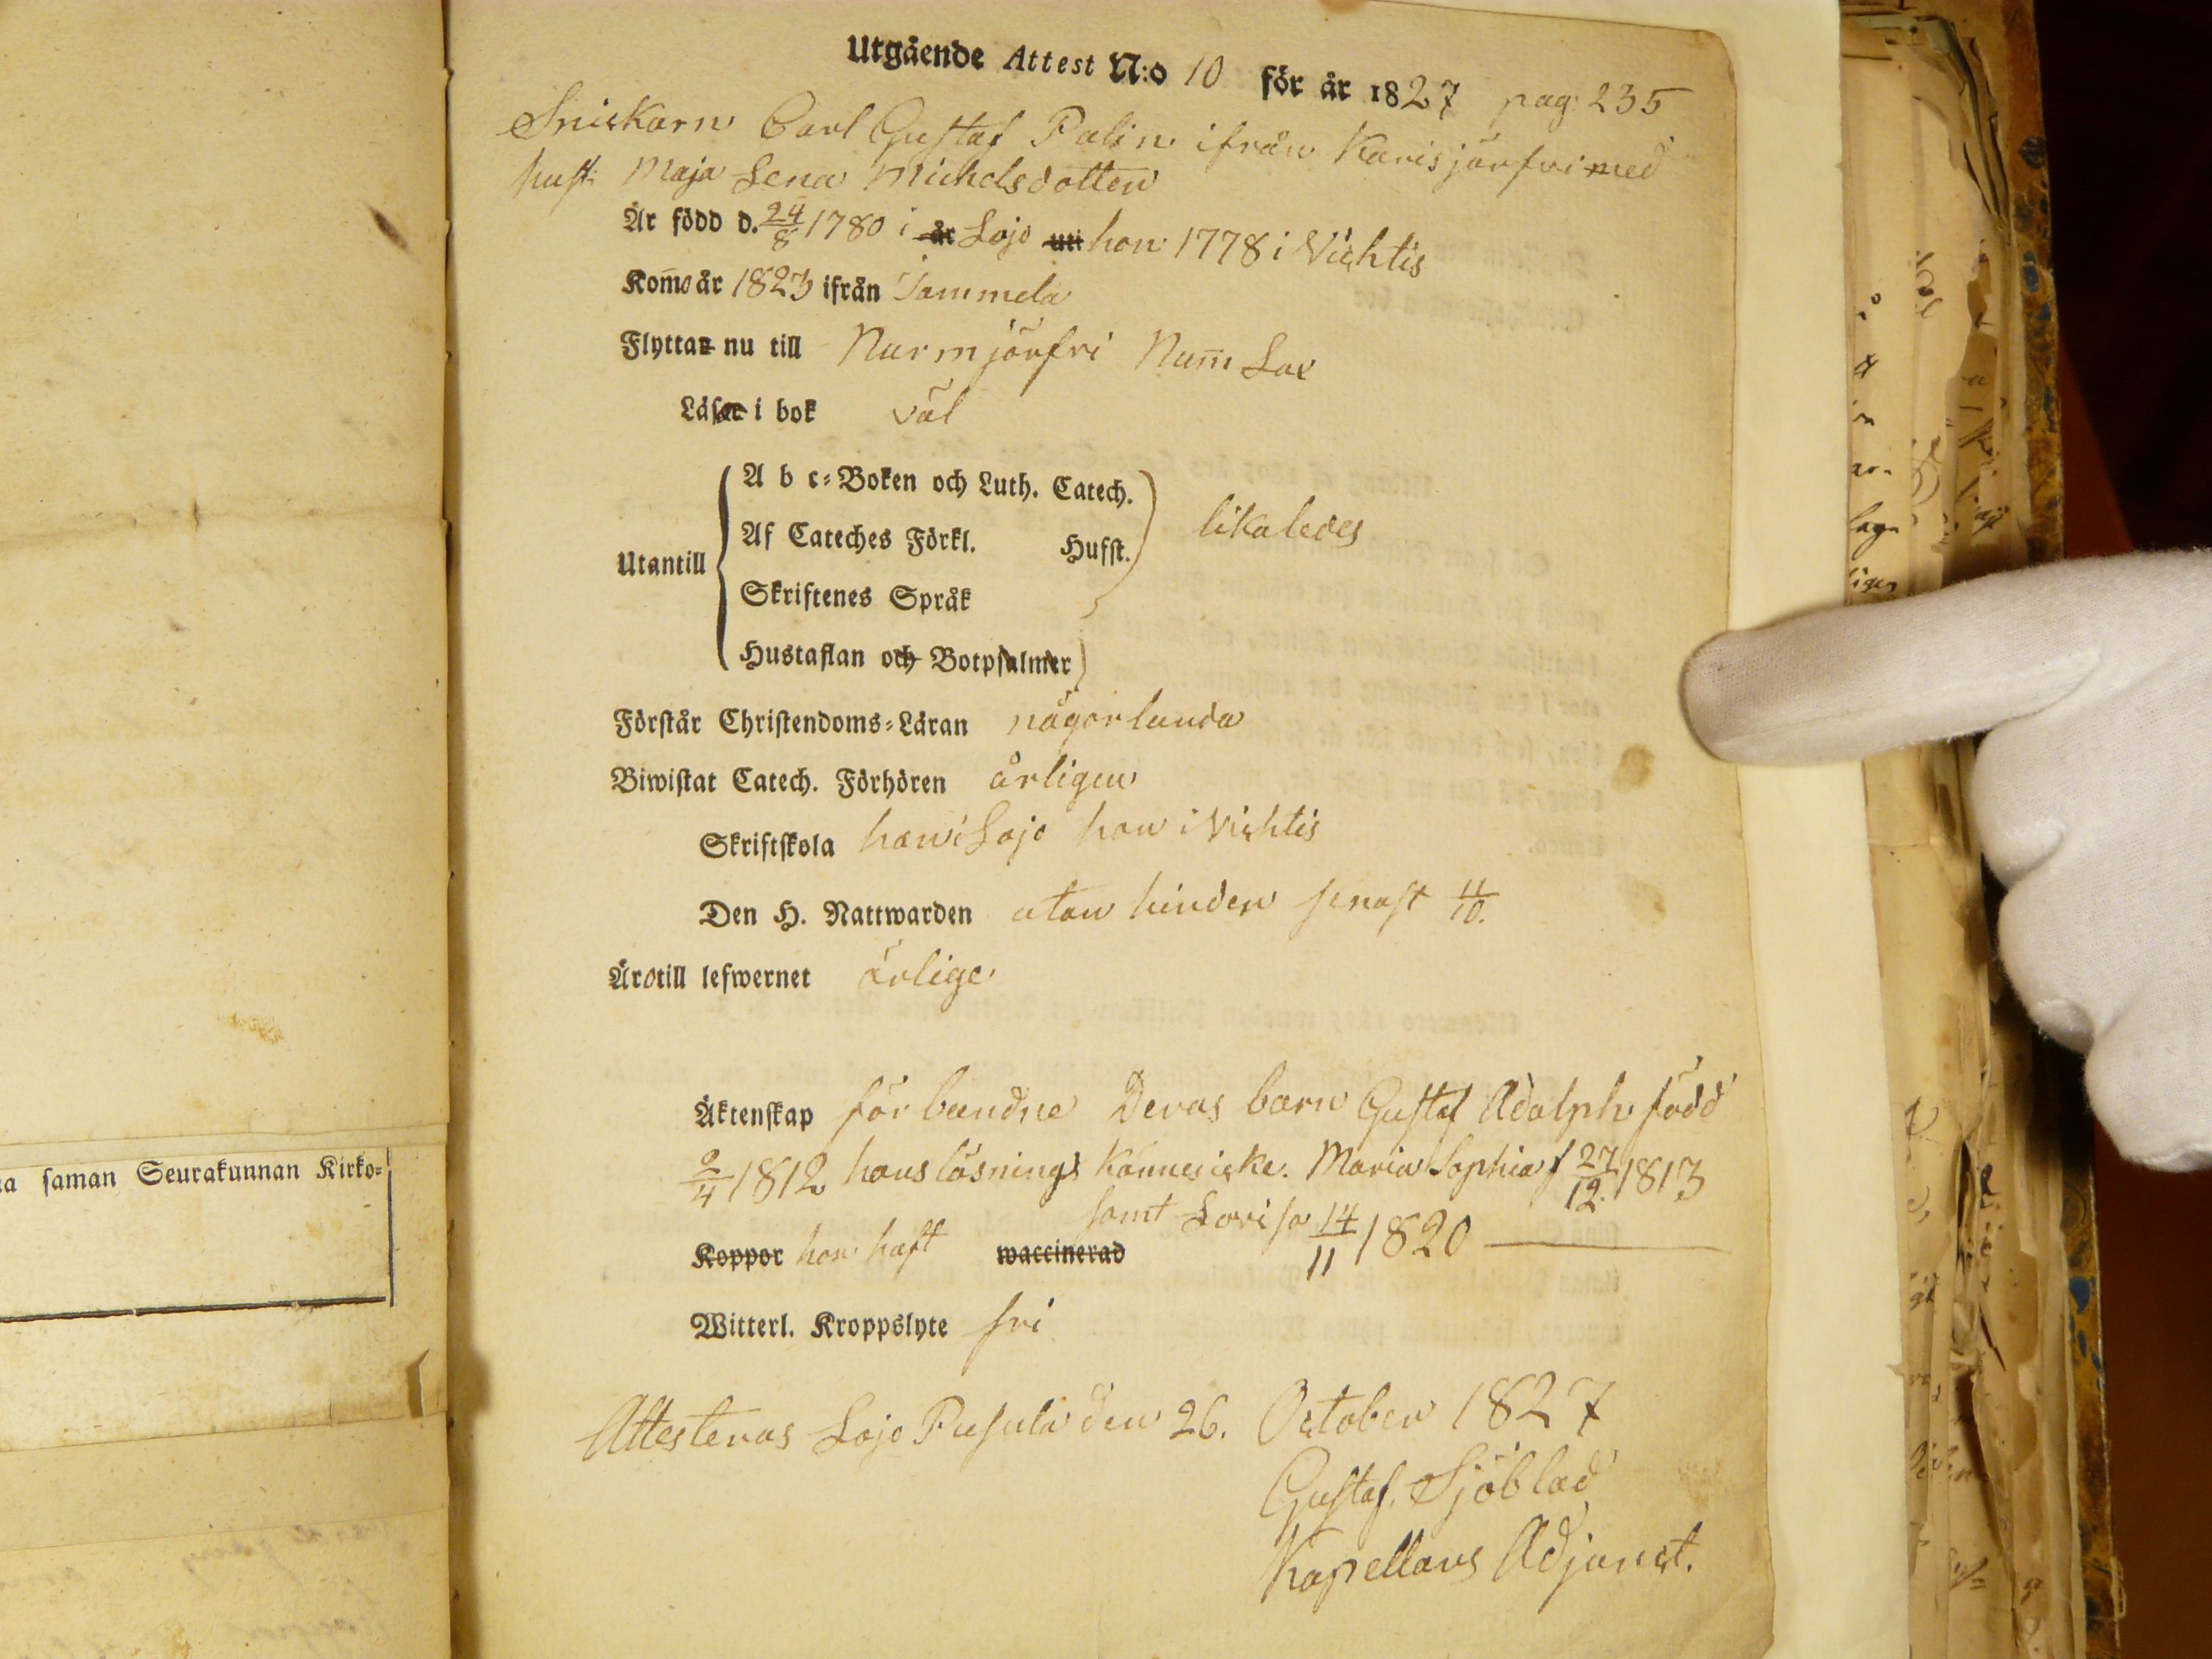 Utgående Attest N:o 10 för år 1827 pag. 235
Snickarn Carl Gustaf Palin ifrån Karisjärfvi med
hust: Maja Lena Michelsdotter
Är född d. 24/8 1780 i år Lojo uti hon 1778 i Vichtis
Kom̄o år 1823 ifrån Tammela
Flyttar nu till Nurmijärfvi Num̄
Läser i bok väl
A b c-Boken och Luth. Catech.
Af Cateches Förkl. Husst. likaledes
Utantill
Skriftenes Språk
Hustaflan och Botpsalmer
Förstår Christendoms-Läran någorlunda
Biwistat Catech. Förhören årligen
Skriftskola han i Lojo hon i Vichtis
Den H. Nattwarden utan hinder senast 11/10.
Äro till lefwernet ärlige
Äktenskap förbundne Deras barn Gustaf Adolph född
2/4 1812 hans läsning Maria Sophia f 27/12. 1813
samt Lovisa 14/11 1820
Koppor hon haft waccinerad
Witterl. Kroppslyte fri
Attesteras Lojo Pusula den 26. October 1827
Gustaf. Sjöblad
Kapellans Adjunct.
na saman Seurakunnan Kirko-